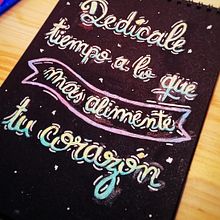 Dedícale
tiempo a lo que
más alimente
tu corazón